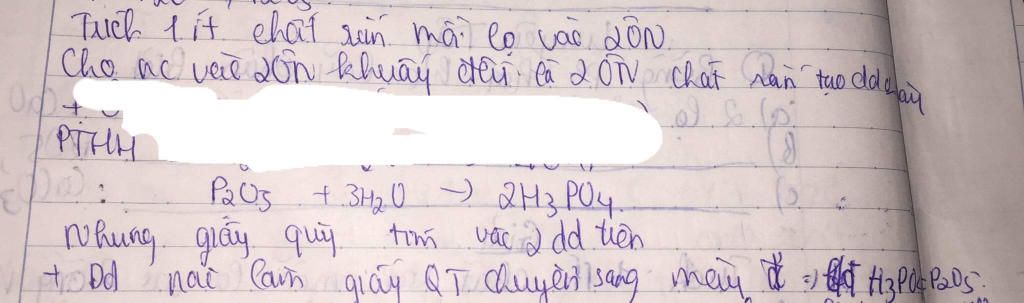 Trích 1 ít chất rắn mỗi lọ vào 2ÔN
Cho nc vào 2ÔN khuấy đều cả 2ÔN chất rắn tạo dd
+
PTHH
: P2O5 + 3H2O → 2H3PO4
Nhúng giấy quỳ tím vào 2 dd trên
+ Dd nào làm giấy QT chuyển sang màu đ ⇒ H3PO4 P2O5.